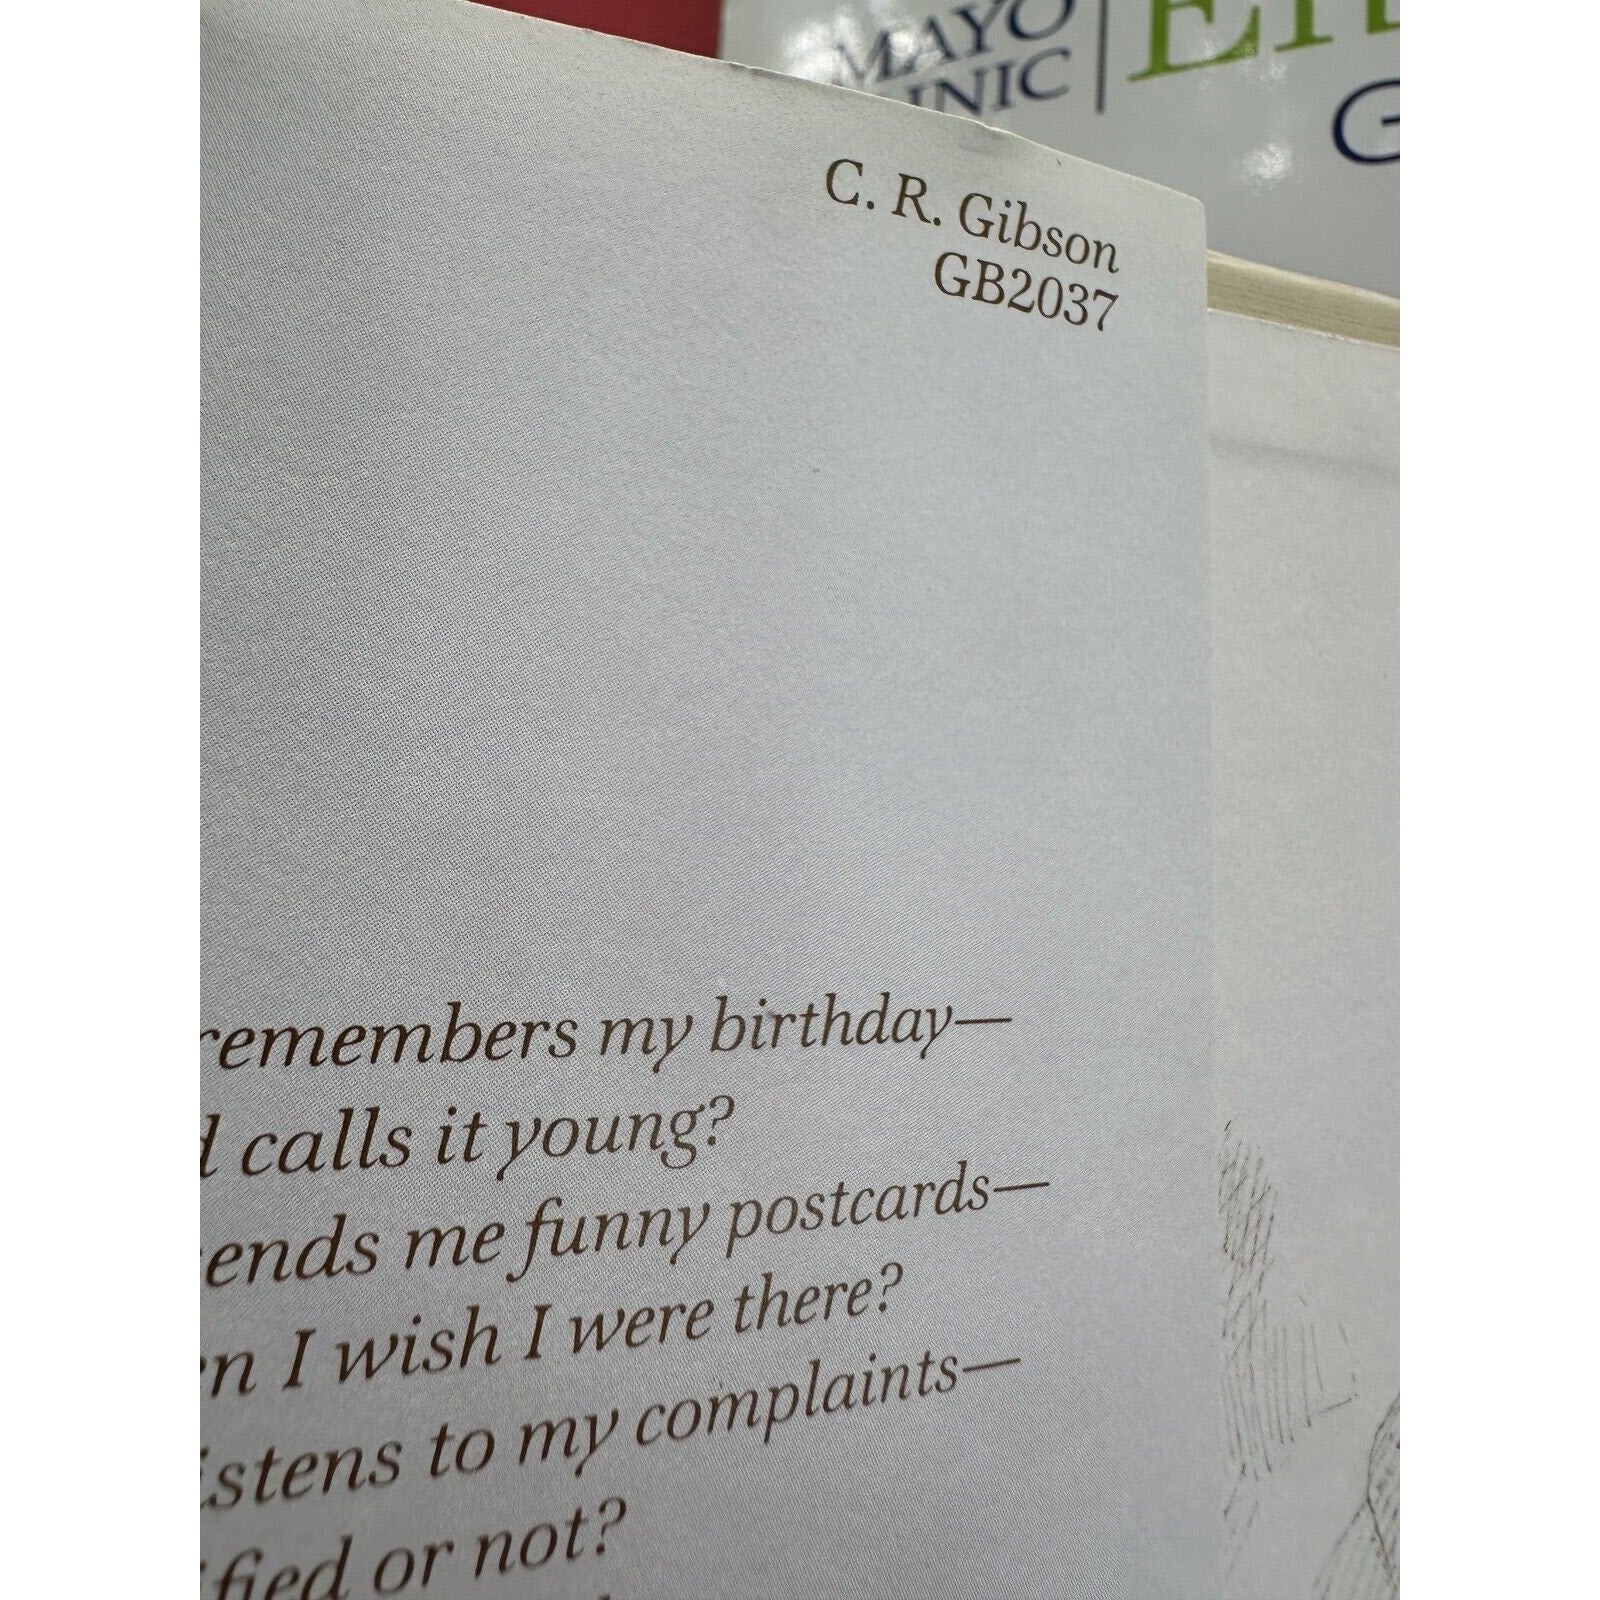 MAYO
C. R. Gibson
GB2037
remembers my birthday—
calls it young?
me funny postcards—
I wish I were there?
to my complaints—
or not?